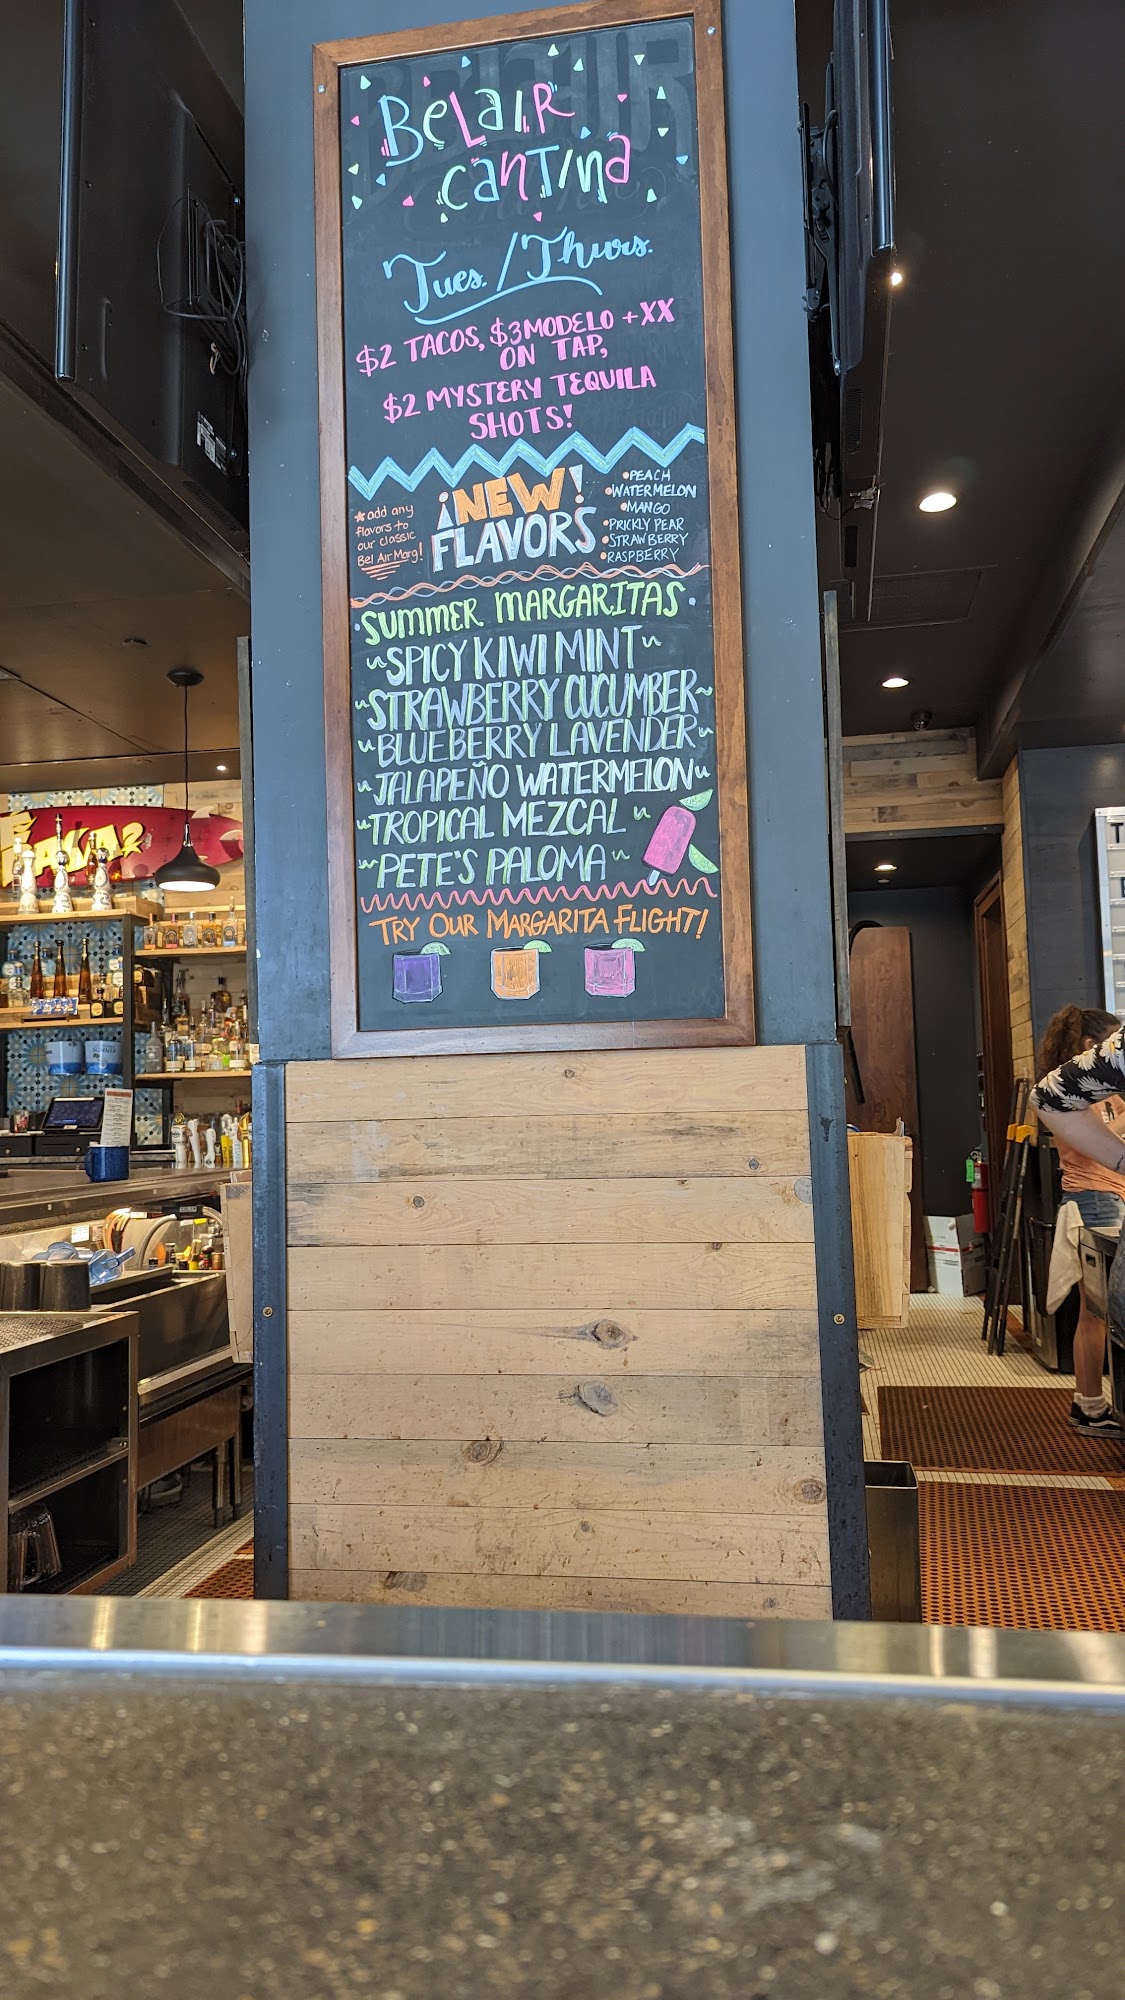 BELAIR
CANTINA
Tues./Thurs.
$2 TACOS, $3 MODELO + XX
ON TAP,
$2 MYSTERY TEQUILA
SHOTS!
add any
flavors to
our classic
Bel Air Marg!
¡NEW!
FLAVORS
• PEACH
• WATERMELON
• MANGO
• PRICKLY PEAR
• STRAWBERRY
• RASPBERRY
SUMMER MARGARITAS
~SPICY KIWI MINT~
~STRAWBERRY CUCUMBER~
~BLUEBERRY LAVENDER~
~JALAPEÑO WATERMELON~
~TROPICAL MEZCAL~
~PETE'S PALOMA~
TRY OUR MARGARITA FLIGHT!